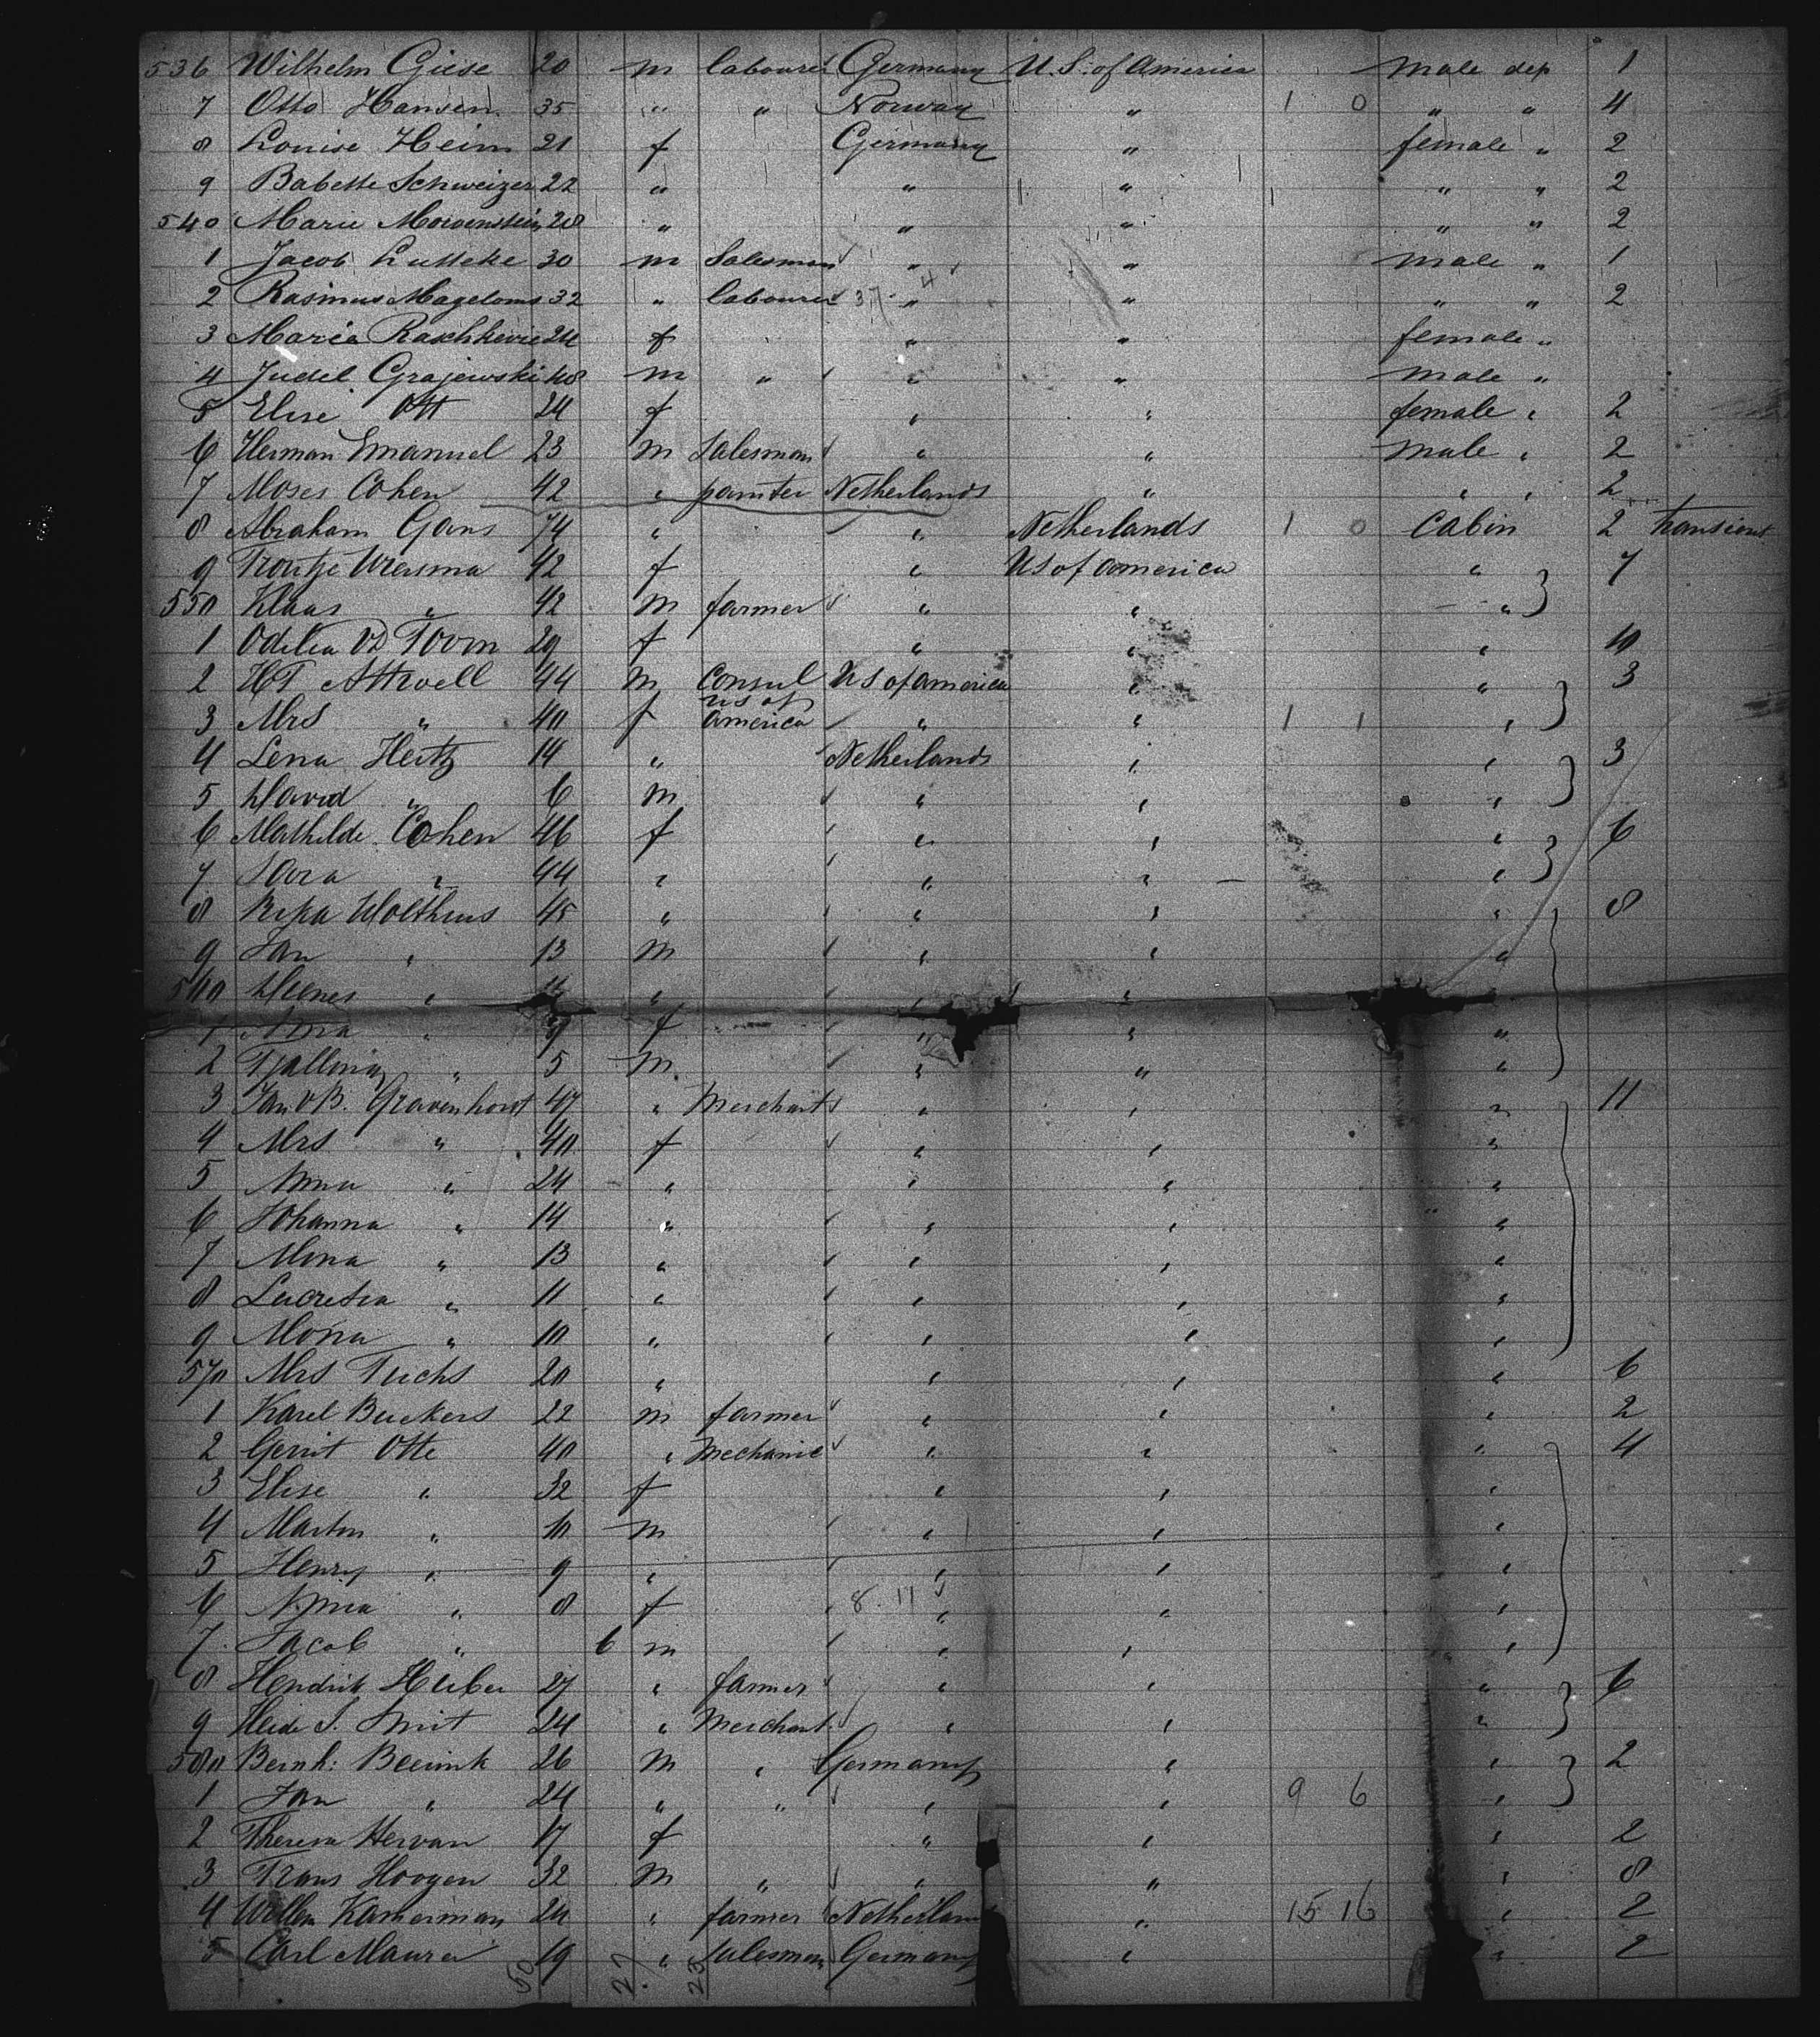 536 Wilhelm Giese 20 m labourer Germany U.S. of America male dep 1
7 Otto Hansen 35 " " Norway " 1 0 " " 4
8 Louise Heim 21 f Germany " female " 2
9 Babette Schweizer 22 " " " " " 2
540 Marie 28 " " " " " 2
1 Jacob 30 m Salesman " " male " 1
2 Rasmus 32 " labourer " " " " 2
3 Maria 24 f " " female "
4 Judel Grajewski 48 m " " " male "
5 Elise Ott 24 f " " female " 2
6 Herman Emanuel 23 m Salesman " " male " 2
7 Moses Cohen 42 " painter Netherlands " " " 2
8 Abraham Gans 74 " " Netherlands 1 0 Cabin 2 transient
9 Trontje Wiersma 42 f " US of america " 7
550 Klaas " 42 m farmer " " "
1 Odilia VD Toorn 29 f " " " 10
2 HT Attwell 44 m Consul US of america " " 3
us of
3 Mrs " 40 f america " " 1 1 "
4 Lena Hertz 14 " Netherlands " " 3
5 David " 6 m " " "
6 Mathilde Cohen 46 f " " " 6
7 Sara " 44 " " " "
8 Wolthuis 45 " " " " 8
9 Jan " 13 m " " "
540 " " " " "
1 Anna " 9 f " " "
2 Tjalling " 5 m " " "
3 Jan vB. Gravenhorst 47 " Merchant " " " 11
4 Mrs " 40 f " " "
5 Anna " 24 " " " "
6 Johanna " 14 " " " "
7 Mina " 13 " " " "
8 Lucretia " 11 " " " "
9 Mona " 10 " " " "
570 Mrs Fuchs 20 " " " " 6
1 Karel Buckers 22 m farmer " " " 2
2 Gerrit Otte 40 " Mechanic " " " 4
3 Elise " 32 f " " "
4 Martin " 10 m " " "
5 Henry " 9 " " " "
6 Anna " 8 f 8 11 " " "
7 Jacob " 6 m " " "
8 Hendrik Huber 27 " farmer " " " 6
9 Smit 24 " Merchant " " "
580 Bernh: Beernink 26 m " Germany " " 2
1 Jan " 24 " " " " 9 6 "
2 Theresa Hervan 17 f " " " 2
3 Frans Hoogen 32 m " " " " 8
4 Willem Kamerman 24 " farmer Netherlan " 15 16 " 2
5 Carl Maurer 19 " salesman Germany " " 2
50 27 23